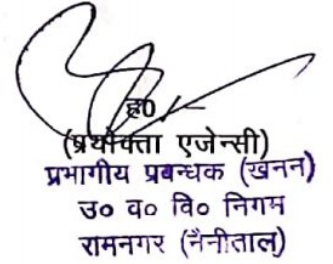 ह0 /-
(प्रयोक्ता एजेन्सी)
प्रभागीय प्रबन्धक (खनन)
उ० व० वि० निगम
रामनगर (नैनीताल)